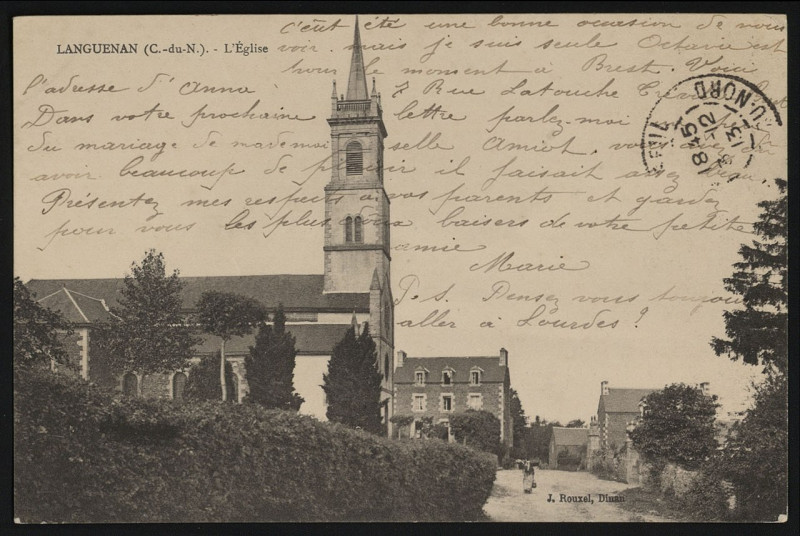 c'eût été une bonne occasion de vous
LANGUENAN (C.-du-N.). - L'Église
voir. mais je suis seule Octavie est
pour le moment à Brest. Voici
l'adresse d'Anna : 7 Rue Latouche
Dans votre prochaine lettre parlez-moi
du mariage de mademoiselle Amiot. vous
avoir beaucoup de plaisir il faisait assez beau
Présentez mes respects à vos parents et gardez
pour vous les plus doux baisers de votre petite
amie
Marie
P. S. Pensez vous toujours
aller à Lourdes ?
DU-NORD
8 45
12
13
J. Rouxel, Dinan